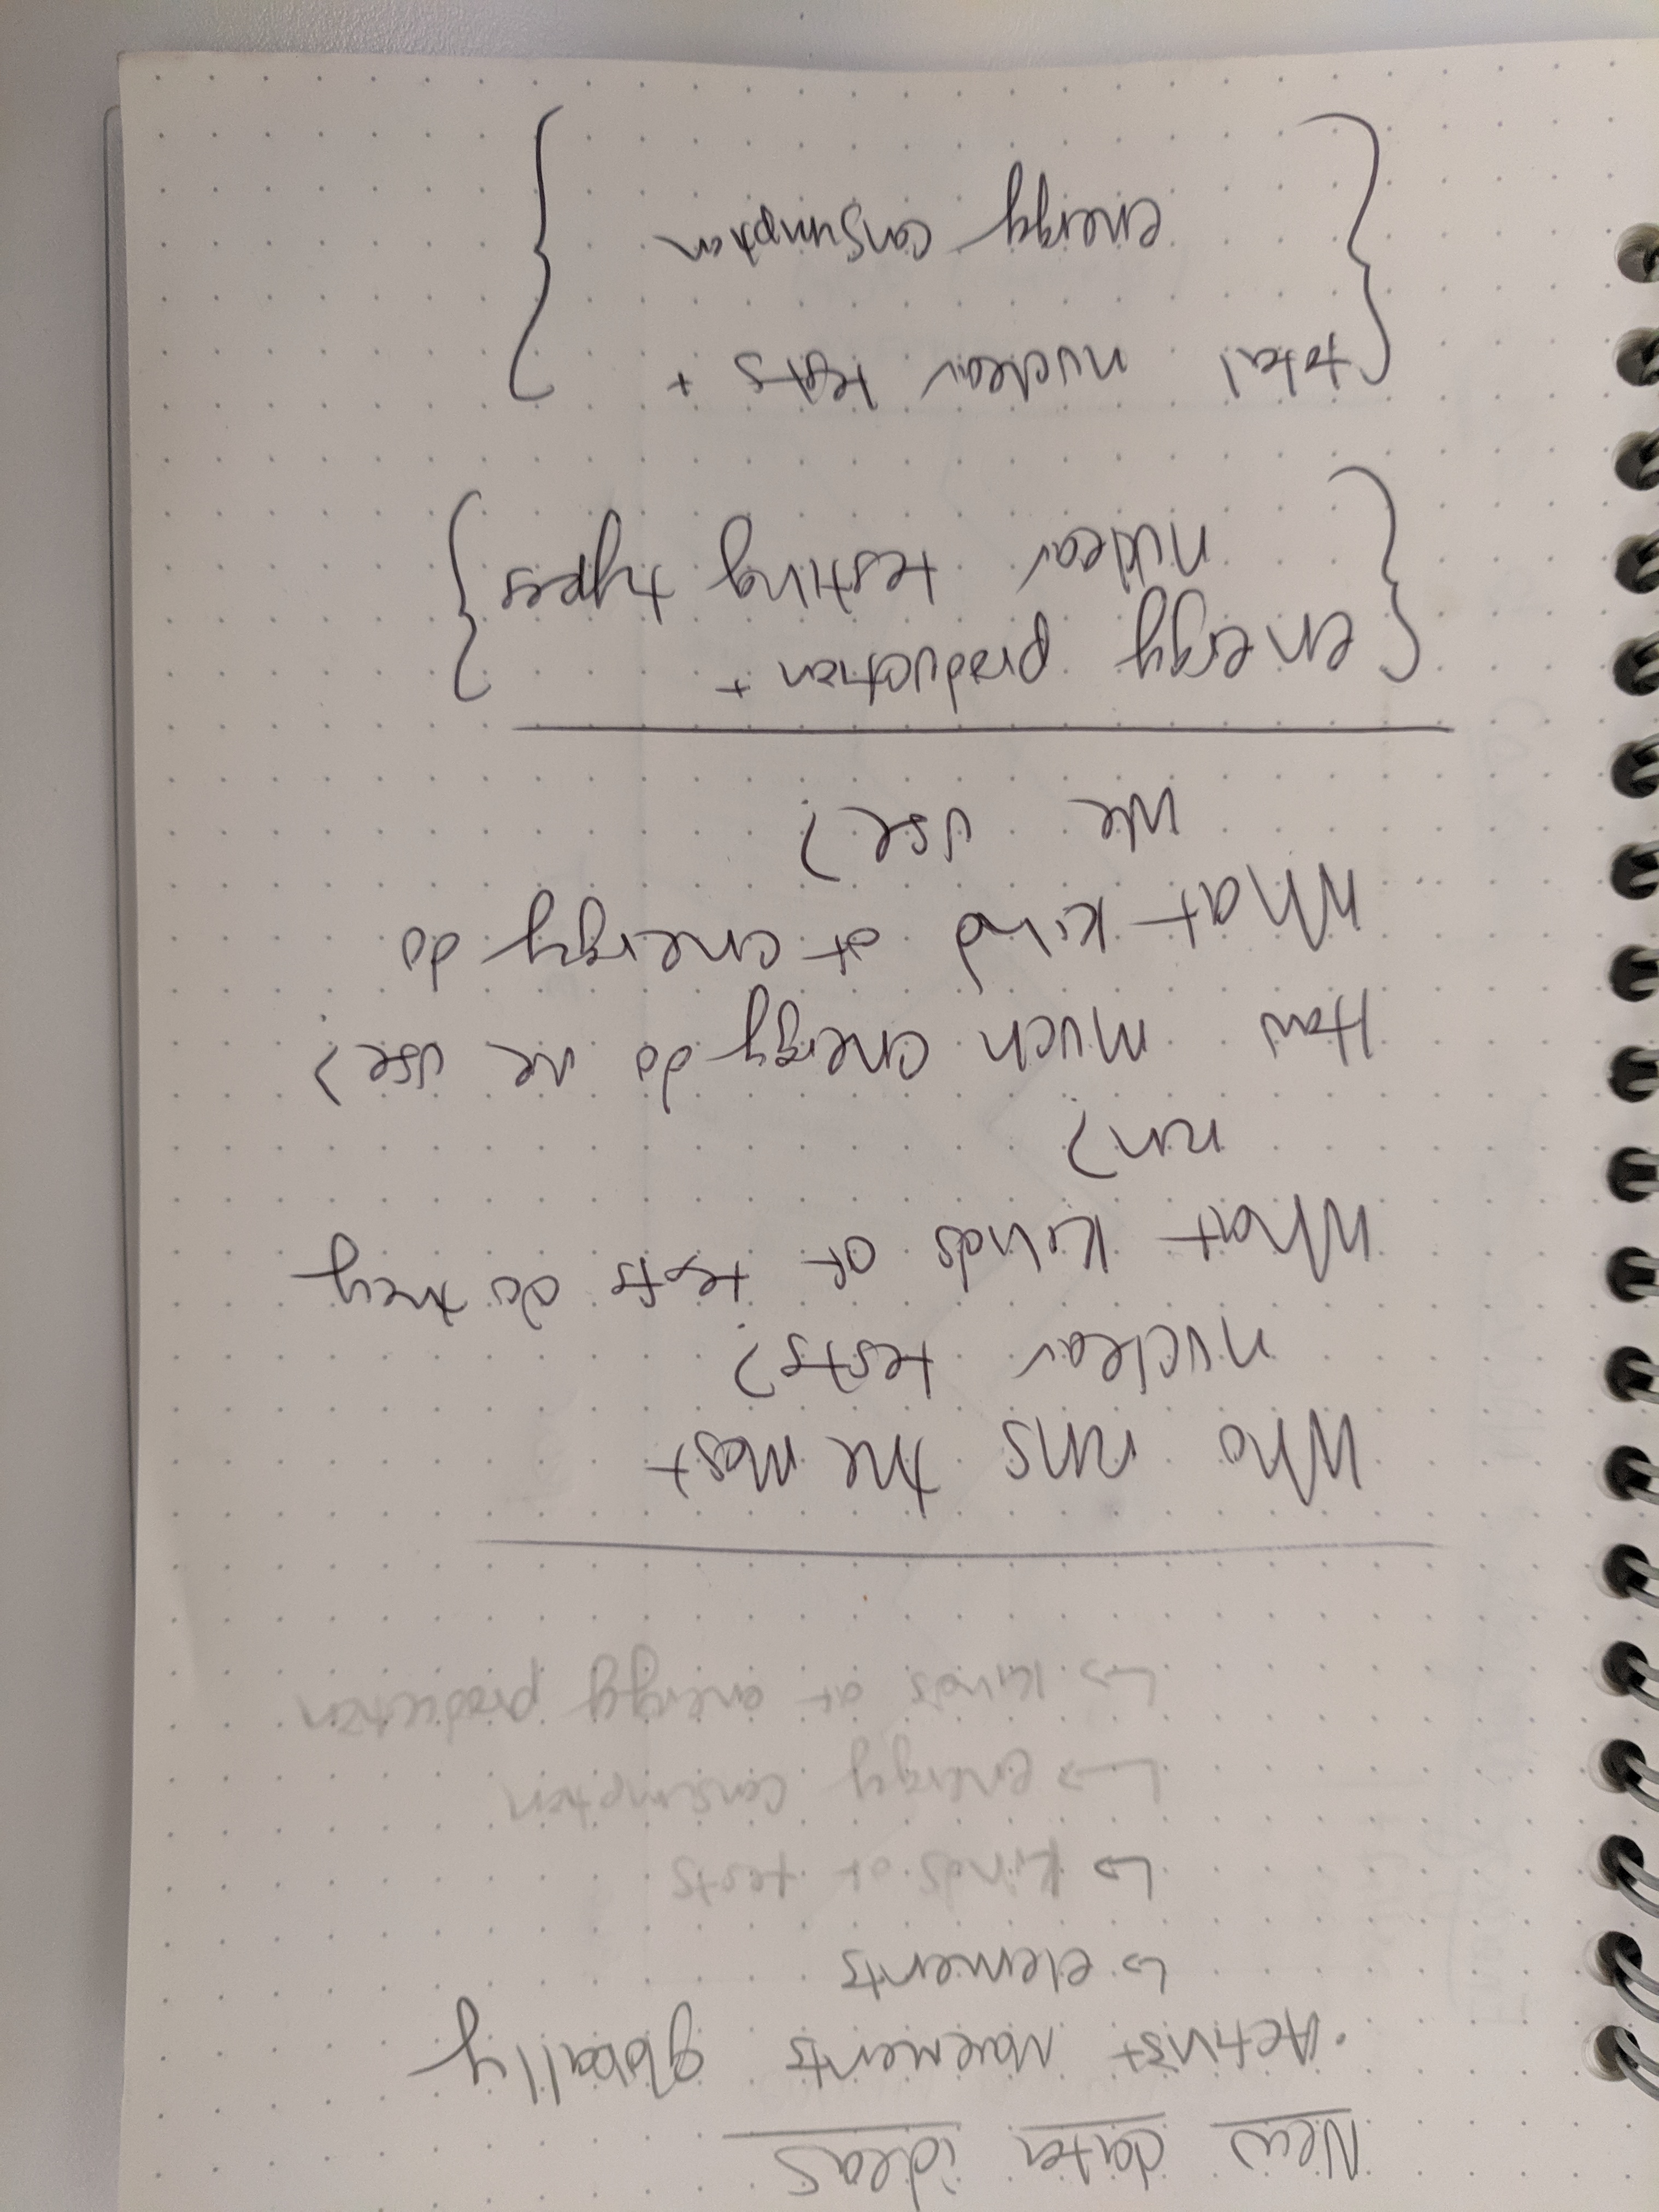 New data ideas
• Activist Movements globally
↳ elements
↳ kinds of tests
↳ energy consumption
↳ kinds of energy production
Who runs the most
nuclear tests?
What kinds of tests do they
run?
How much energy do we use?
What kind of energy do
we use?
{energy production +
nuclear testing types}
{total nuclear tests +
energy consumption}